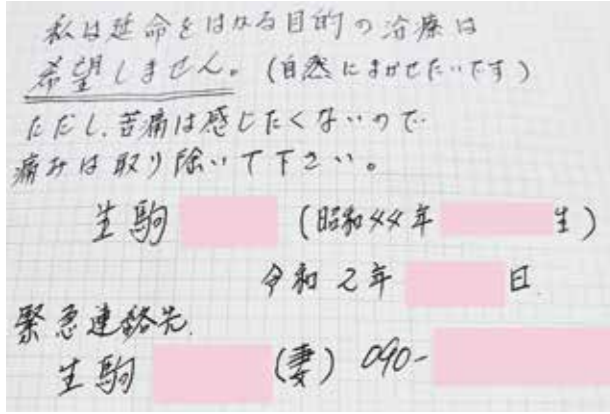 私は延命をはかる目的の治療は
希望しません。(自然にまかせたいです)
ただし、苦痛は感じたくないので
痛みは取り除いて下さい。
生駒 (昭和44年 生)
令和2年 日
緊急連絡先
生駒 (妻) 090-